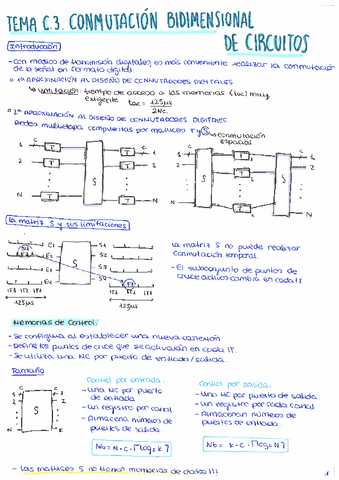 TEMA C.3. CONMUTACIÓN BIDIMENSIONAL
DE CIRCUITOS
Introducción
- Con medios de transmisión digitales, es más conveniente realizar la conmutación
de la señal en formato digital.
1ª APROXIMACIÓN AL DISEÑO DE CONMUTADORES DIGITALES
↳ Limitación: tiempo de acceso a las memorias (tac) muy
exigente tac = 125μs / 2Nc.
2ª APROXIMACIÓN AL DISEÑO DE CONMUTADORES DIGITALES
Redes multietapa compuestas por matrices T y S → conmutación
espacial
1 C T S C 1
2 T 2
N T N
1 S T S 1
2 T 2
N T N
La matriz S y sus limitaciones
E1 S1
E2 S2
S
125μs 125μs
La matriz S no puede realizar
conmutación temporal.
- El subconjunto de puntos de
cruce activos cambia en cada IT
Memorias de Control:
- Se configura al establecer una nueva conexión
- Define los puntos de cruce que se activarán en cada IT.
- Se utiliza una MC por puerto de entrada/salida.
Tamaño
1 C S C 1
2 2
N K
Control por entrada:
- Una MC por puerto
de entrada
- Un registro por canal
- Almacena número de
puertos de salida.
Nb = N·C·⌈log₂ K⌉
Control por salida:
- Una MC por puerto de salida
- Un registro por cada canal
- Almacenan número de
puertos de entrada.
Nb = K·C·⌈log₂ N⌉
- Las matrices S no tienen memorias de datos!!!
1